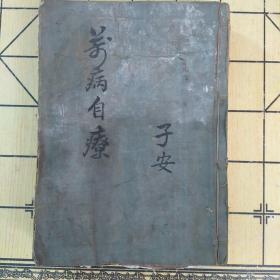 萬病自療
子安